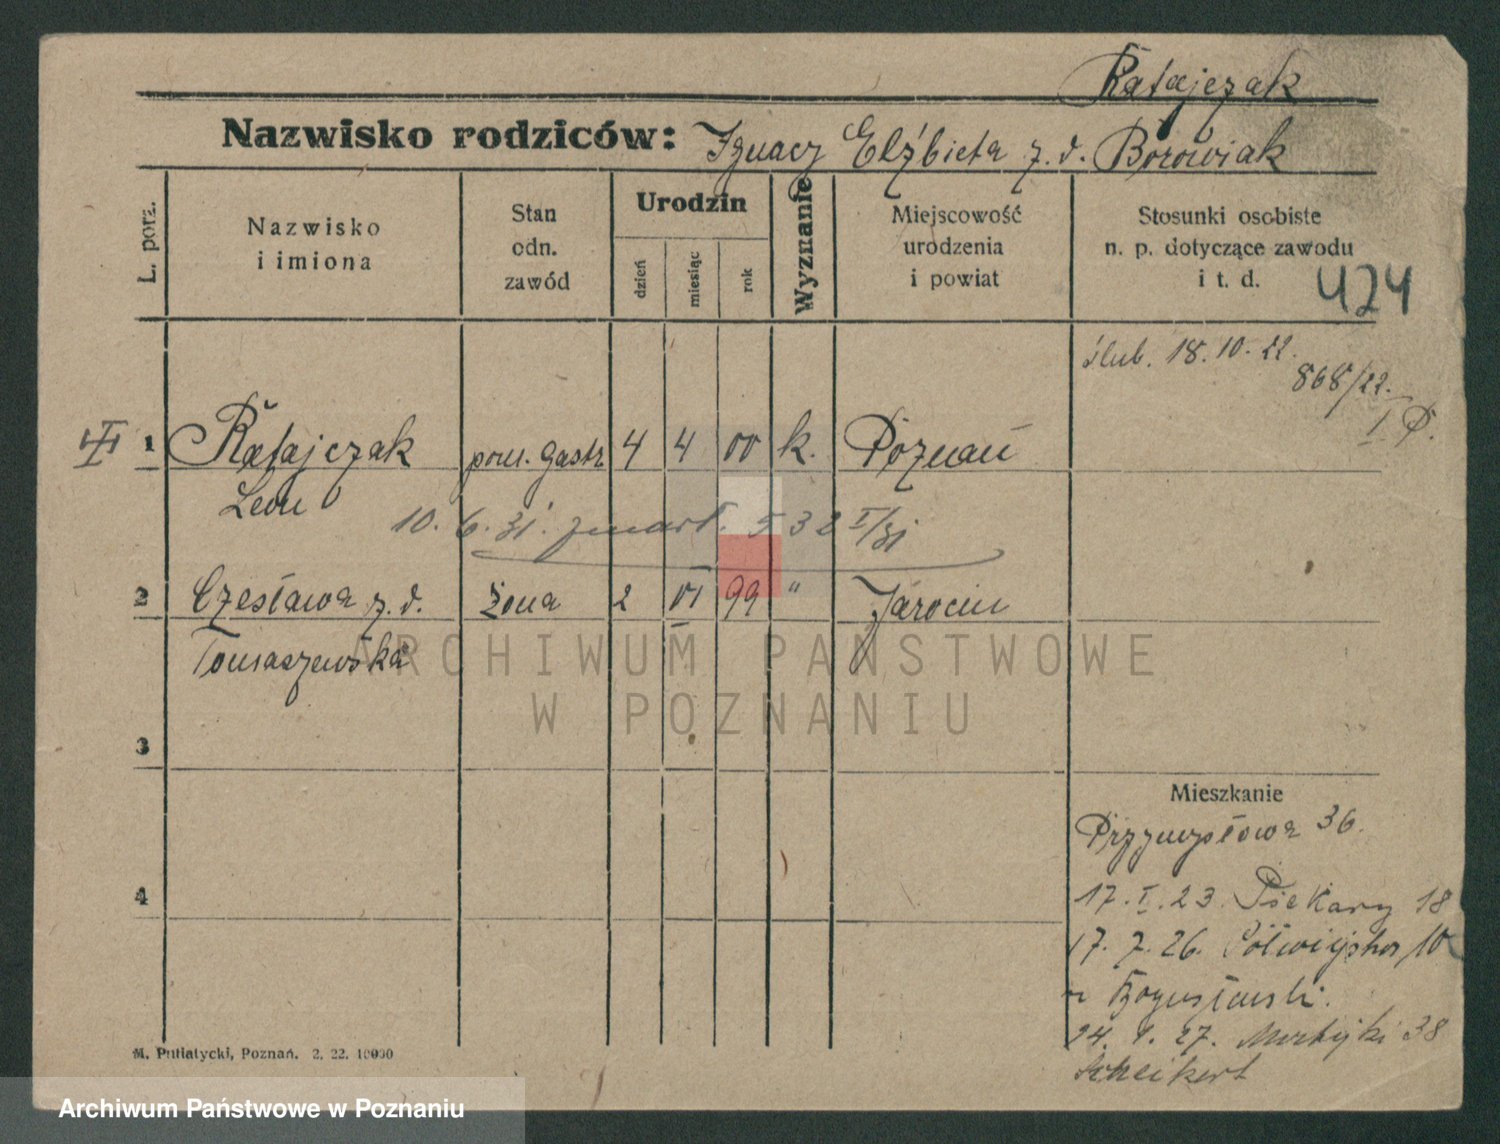 Ratajczak
Nazwisko rodziców: Ignacy Elżbieta z. d. Borowiak
L. porz.
Nazwisko
i imiona
Stan
odn.
zawód
Urodzin
dzień
miesiąc
rok
Wyznanie
Miejscowość
urodzenia
i powiat
Stosunki osobiste
n. p. dotyczące zawodu
i t. d.
424
ślub. 18. 10. 22.
868/22.
I P.
1 Ratajczak pom. Gastr. 4 4 00 k. Poznań
Leon
10. 6. 31. zmarł. 532 I/31
2 Czesława z. d. żona 2 VI 99 " Jarocin
Tomaszewska
ARCHIWUM PAŃSTWOWE
W POZNANIU
3
Mieszkanie
Przemysłowa 36.
4
17. I. 23. Piekary 18
17. 7. 26. Półwiejska 10
Bogusławski.
24. 27. 38
M. Putiatycki, Poznań. 2, 22. 10000
Archiwum Państwowe w Poznaniu